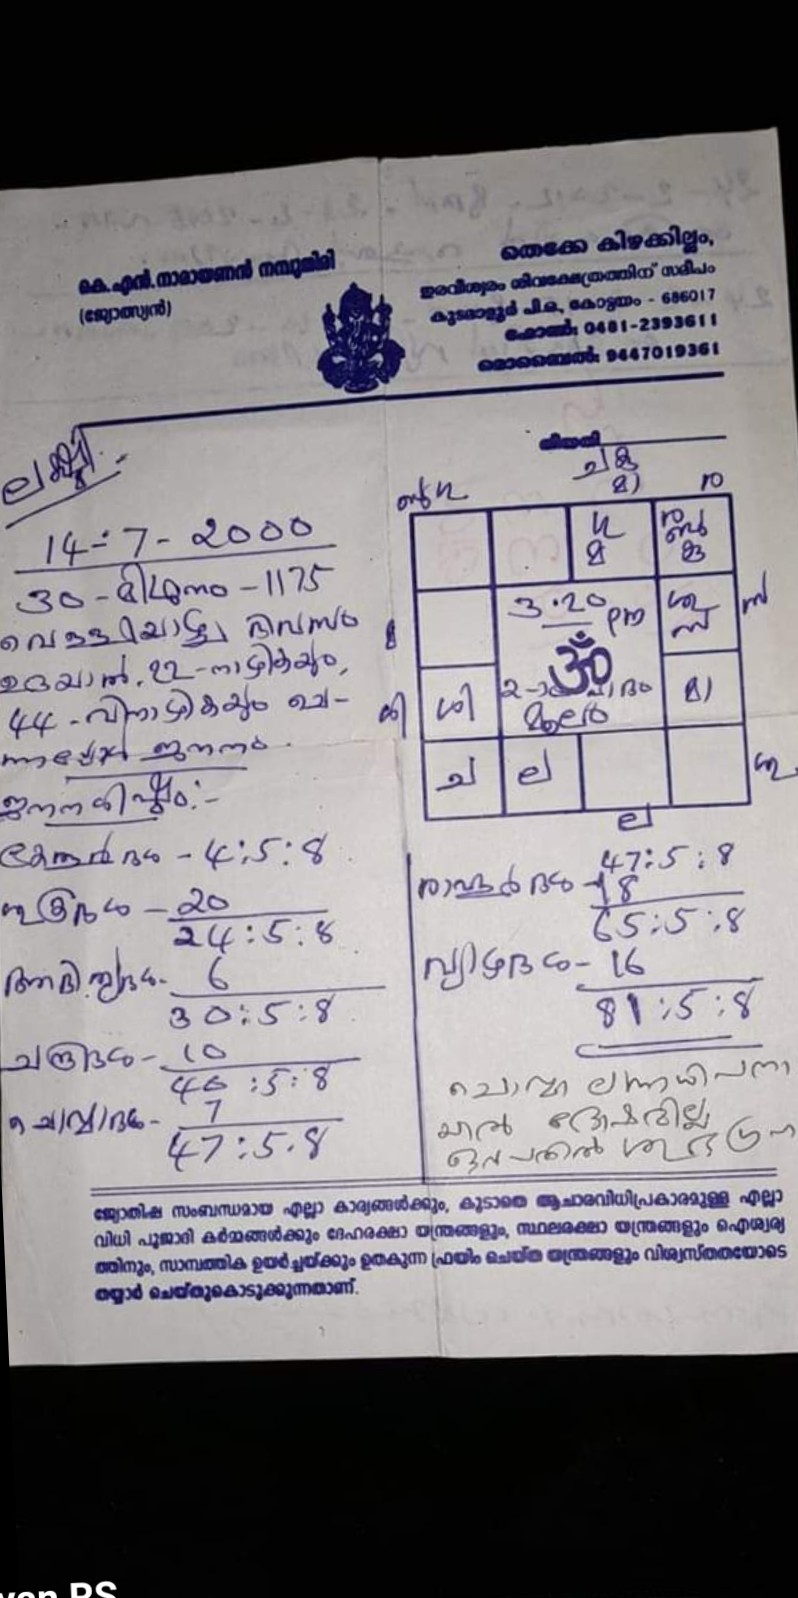 കെ.എൻ.നാരായണൻ നമ്പൂതിരി
(ജ്യോത്സ്യൻ)
തെക്കേ കിഴക്കില്ലം,
ഇരവീശ്വരം ശിവക്ഷേത്രത്തിന് സമീപം
കുടമാളൂർ പി.ഒ, കോട്ടയം - 686017
ഫോൺ: 0481-2393611
മൊബൈൽ: 9447019361
തീയതി
ലക്ഷ്മി
14-7-2000
30-മിഥുനം-1175
വെള്ളിയാഴ്ച ദിവസം
ഉദയാൽ 22-നാഴികയും,
44-വിനാഴികയും ചെ-
ന്നപ്പോൾ ജനനം.
ജനനശിഷ്ടം:-
കേതുർദശ - 4:5:8
ശുക്രദശ - 20
24:5:8
ആദിത്യദശ - 6
30:5:8
ചന്ദ്രദശ - 10
40:5:8
ചൊവ്വാദശ - 7
47:5:8
ഗു
മ
3.20 pm
ശി
2-ാം പാദം
മൂലം
മാ
ച
ല
ല
47:5:8
രാഹുർദശ - 18
65:5:8
വ്യാഴദശ - 16
81:5:8
ചൊവ്വാ ലഗ്നാധിപനാ
യാൽ ദോഷമില്ല
ഒൻപതിൽ
ജ്യോതിഷ സംബന്ധമായ എല്ലാ കാര്യങ്ങൾക്കും, കൂടാതെ ആചാരവിധിപ്രകാരമുള്ള എല്ലാ
വിധി പൂജാദി കർമ്മങ്ങൾക്കും ദേഹരക്ഷാ യന്ത്രങ്ങളും, സ്ഥലരക്ഷാ യന്ത്രങ്ങളും ഐശ്വര്യ
ത്തിനും, സാമ്പത്തിക ഉയർച്ചയ്ക്കും ഉതകുന്ന ഫ്രയിം ചെയ്ത യന്ത്രങ്ങളും വിശ്വസ്തതയോടെ
തയ്യാർ ചെയ്തുകൊടുക്കുന്നതാണ്.